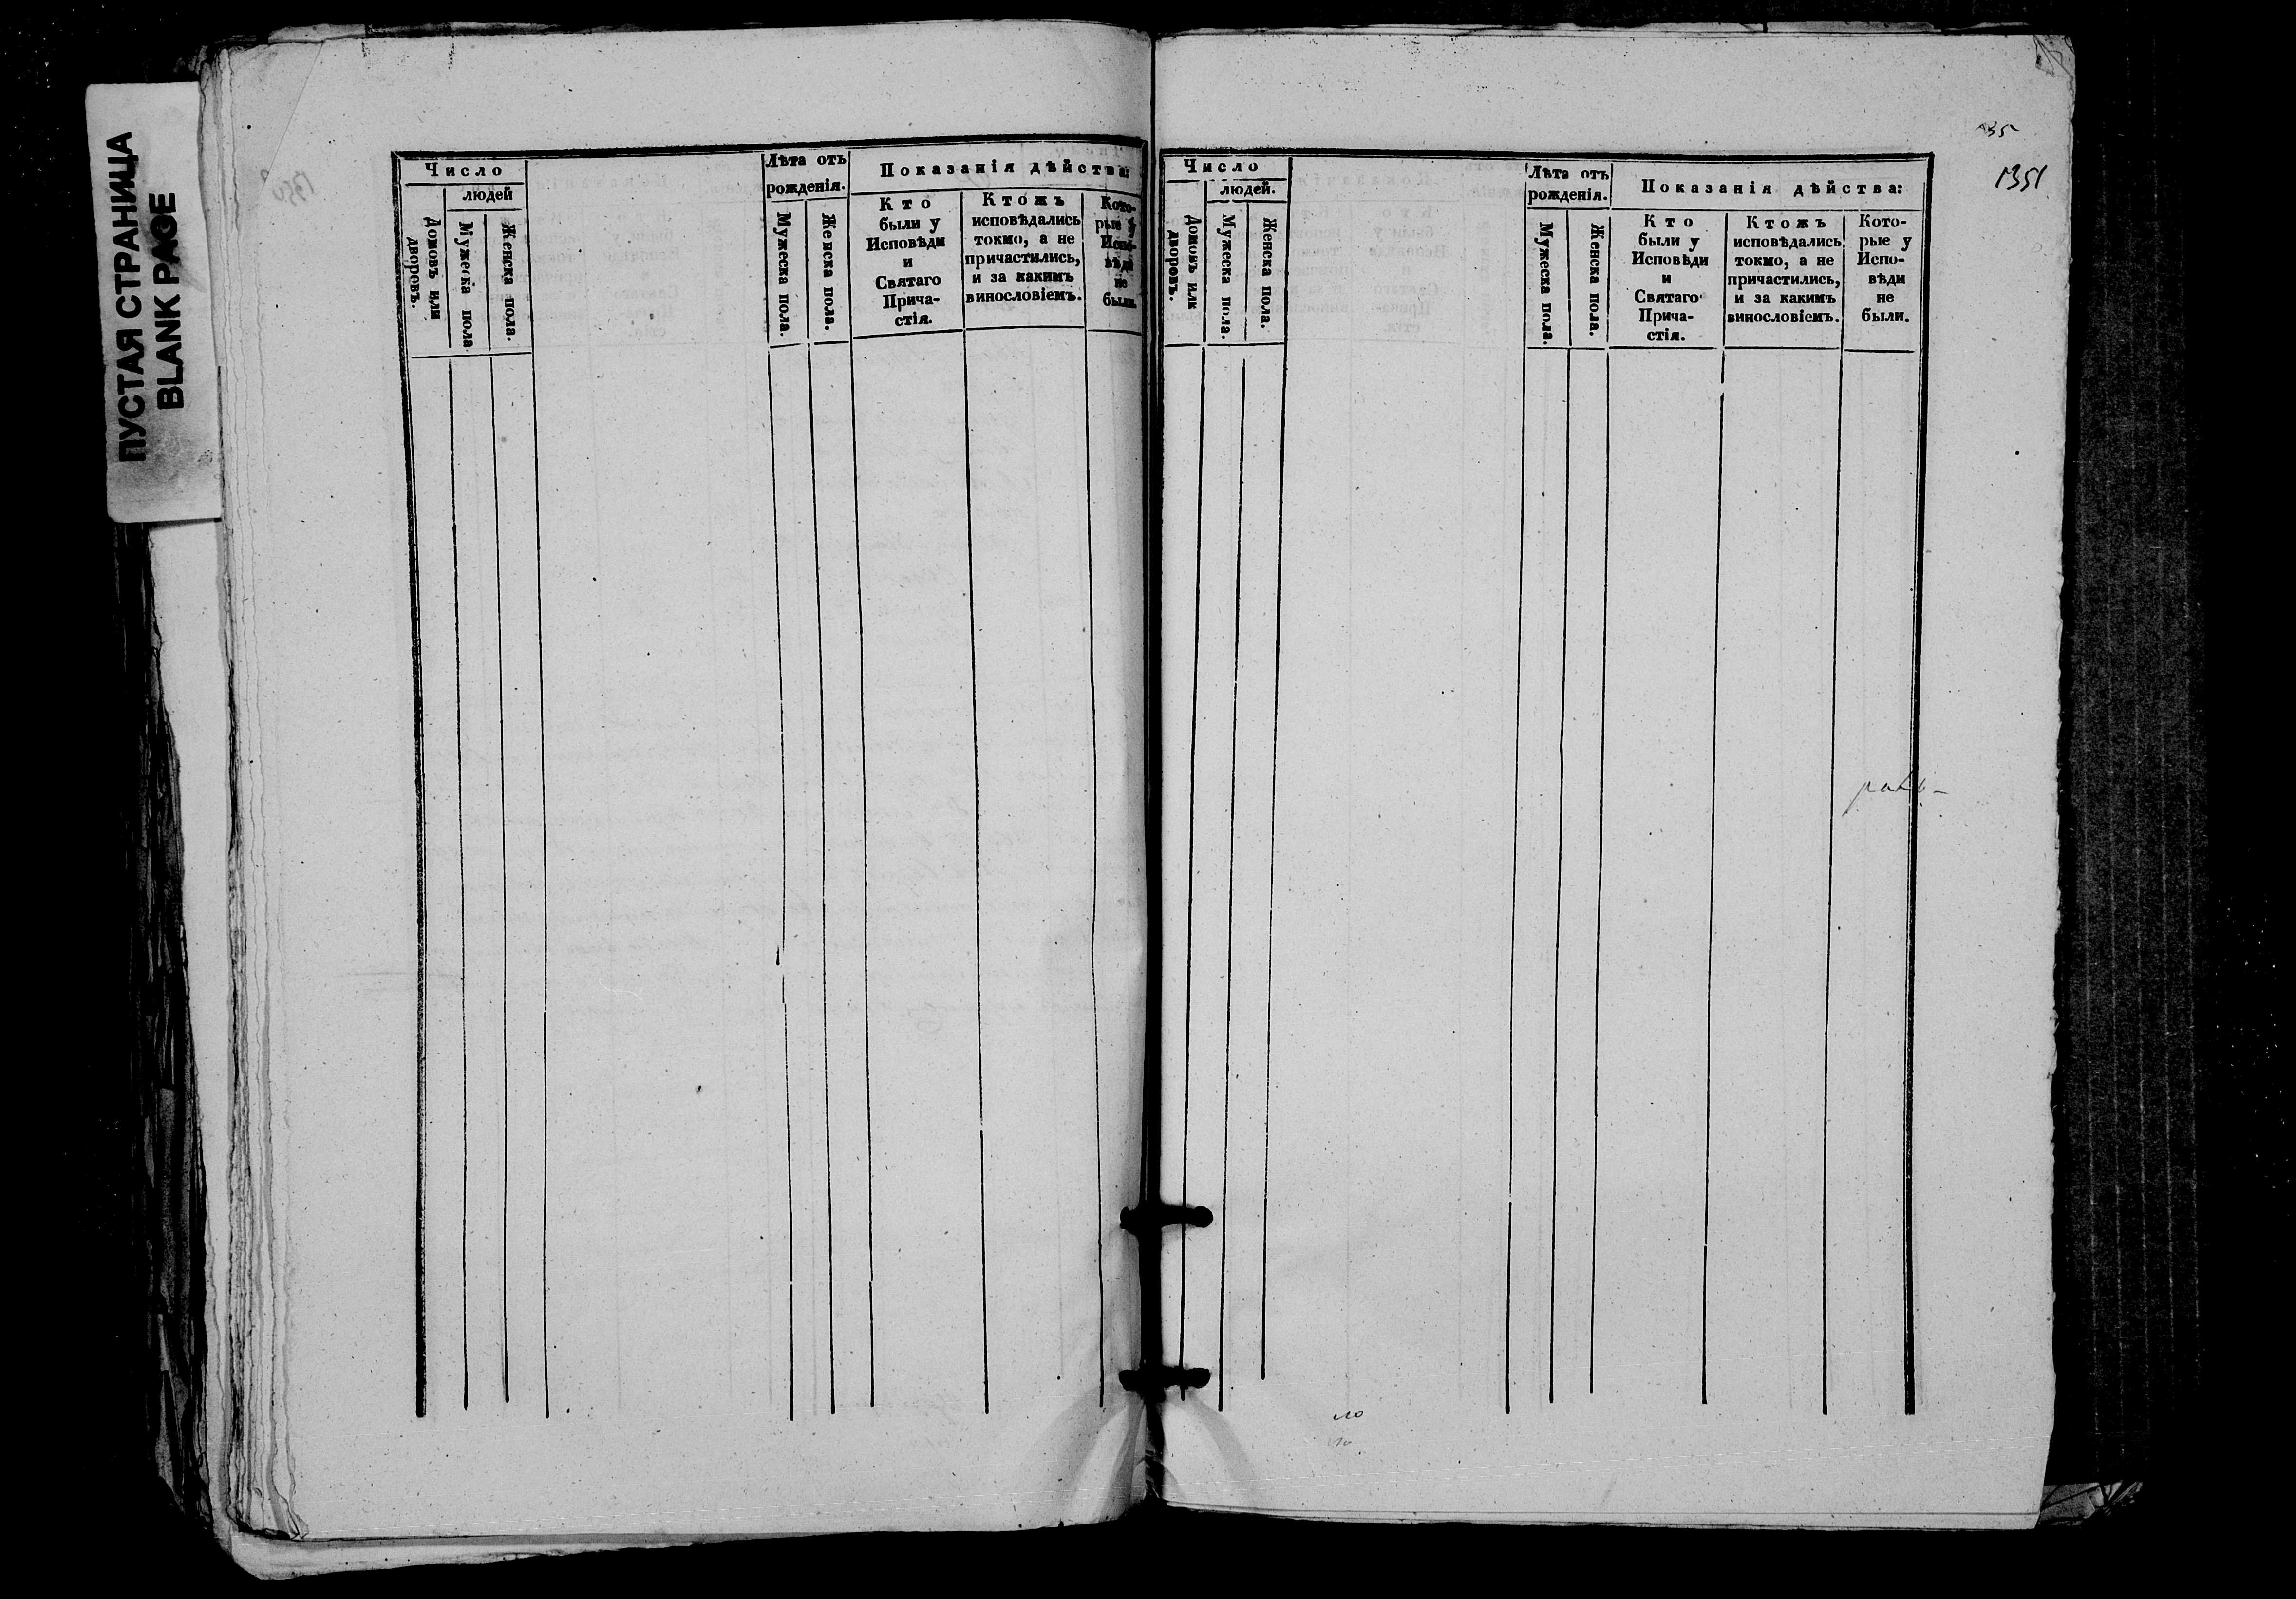 ПУСТАЯ СТРАНИЦА
BLANK PAGE
Число
людей
Домовъ или
дворовъ.
Мужеска пола
Женска пола.
Лѣта отъ
рожденія.
Мужеска пола.
Женска пола.
Показанія дѣйства:
Кто
были у
Исповѣди
и
Святаго
Прича-
стія.
Ктожъ
исповѣдались
токмо, а не
причастились,
и за какимъ
винословіемъ.
Кото-
рые у
Испо-
вѣди
не
были.
1351
Число
людей.
Домовъ илк
дворовъ.
Мужеска пола.
Женска пола.
Лѣта отъ
рожденія.
Мужеска пола.
Женска пола.
Показанія дѣйства:
Кто
были у
Исповѣди
и
Святаго
Прича-
стія.
Ктожъ
исповѣдались
токмо, а не
причастились,
и за какимъ
винословіемъ.
Кото-
рые у
Испо-
вѣди
не
были.